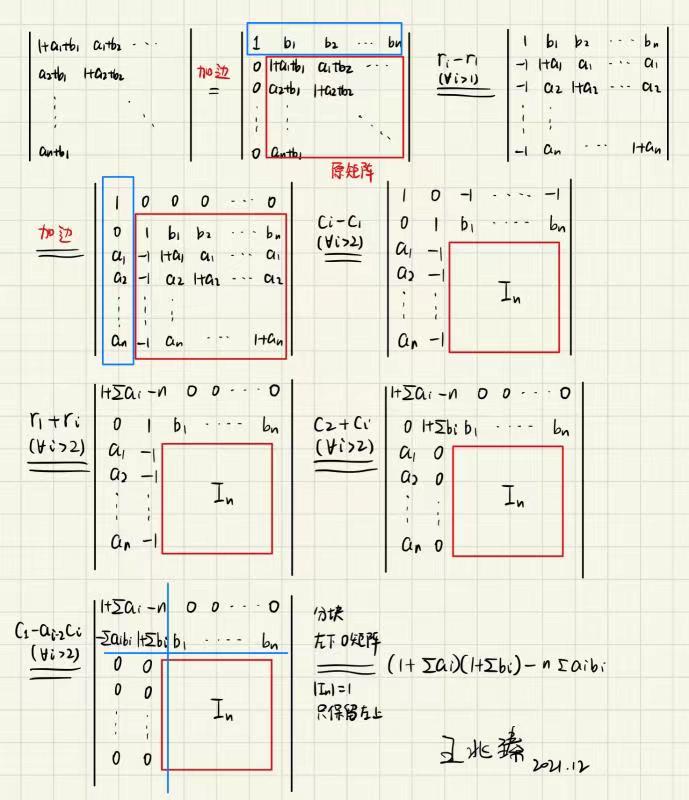 1+a₁+b₁ a₁+b₂ ⋯
a₂+b₁ 1+a₂+b₂
⋮ ⋱
aₙ+b₁
加边
=
1 b₁ b₂ ⋯ bₙ
0 1+a₁+b₁ a₁+b₂ ⋯
0 a₂+b₁ 1+a₂+b₂
⋮ ⋮ ⋱
0 aₙ+b₁
原矩阵
rᵢ-r₁
(∀i>1)
1 b₁ b₂ ⋯ bₙ
-1 1+a₁ a₁ ⋯ a₁
-1 a₂ 1+a₂ ⋯ a₂
⋮ ⋮
-1 aₙ ⋯ 1+aₙ
加边
1 0 0 0 ⋯ 0
0 1 b₁ b₂ ⋯ bₙ
a₁ -1 1+a₁ a₁ ⋯ a₁
a₂ -1 a₂ 1+a₂ ⋯ a₂
⋮ ⋮ ⋮
aₙ -1 aₙ ⋯ 1+aₙ
Cᵢ-C₁
(∀i>2)
1 0 -1 ⋯ -1
0 1 b₁ ⋯ bₙ
a₁ -1
a₂ -1
Iₙ
⋮ ⋮
aₙ -1
r₁+rᵢ
(∀i>2)
1+Σaᵢ -n 0 0 ⋯ 0
0 1 b₁ ⋯ bₙ
a₁ -1
a₂ -1
Iₙ
⋮ ⋮
aₙ -1
C₂+Cᵢ
(∀i>2)
1+Σaᵢ -n 0 0 ⋯ 0
0 1+Σbᵢ b₁ ⋯ bₙ
a₁ 0
a₂ 0
Iₙ
⋮ ⋮
aₙ 0
C₁-aᵢ₋₂Cᵢ
(∀i>2)
1+Σaᵢ -n 0 0 ⋯ 0
-Σaᵢbᵢ 1+Σbᵢ b₁ ⋯ bₙ
0 0
0 0
Iₙ
⋮ ⋮
0 0
分块
左下0矩阵
|Iₙ|=1
只保留左上
(1+Σaᵢ)(1+Σbᵢ)-nΣaᵢbᵢ
王兆臻
2021.12